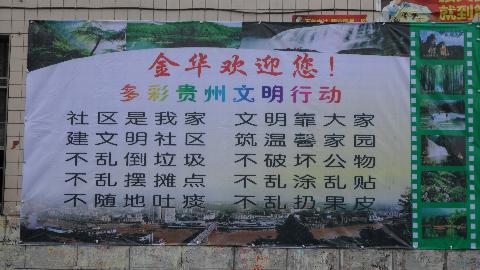 金华欢迎您！
多彩贵州文明行动
社区是我家 文明靠大家
建文明社区 筑温馨家园
不乱倒垃圾 不破坏公物
不乱摆摊点 不乱涂乱贴
不随地吐痰 不乱扔果皮